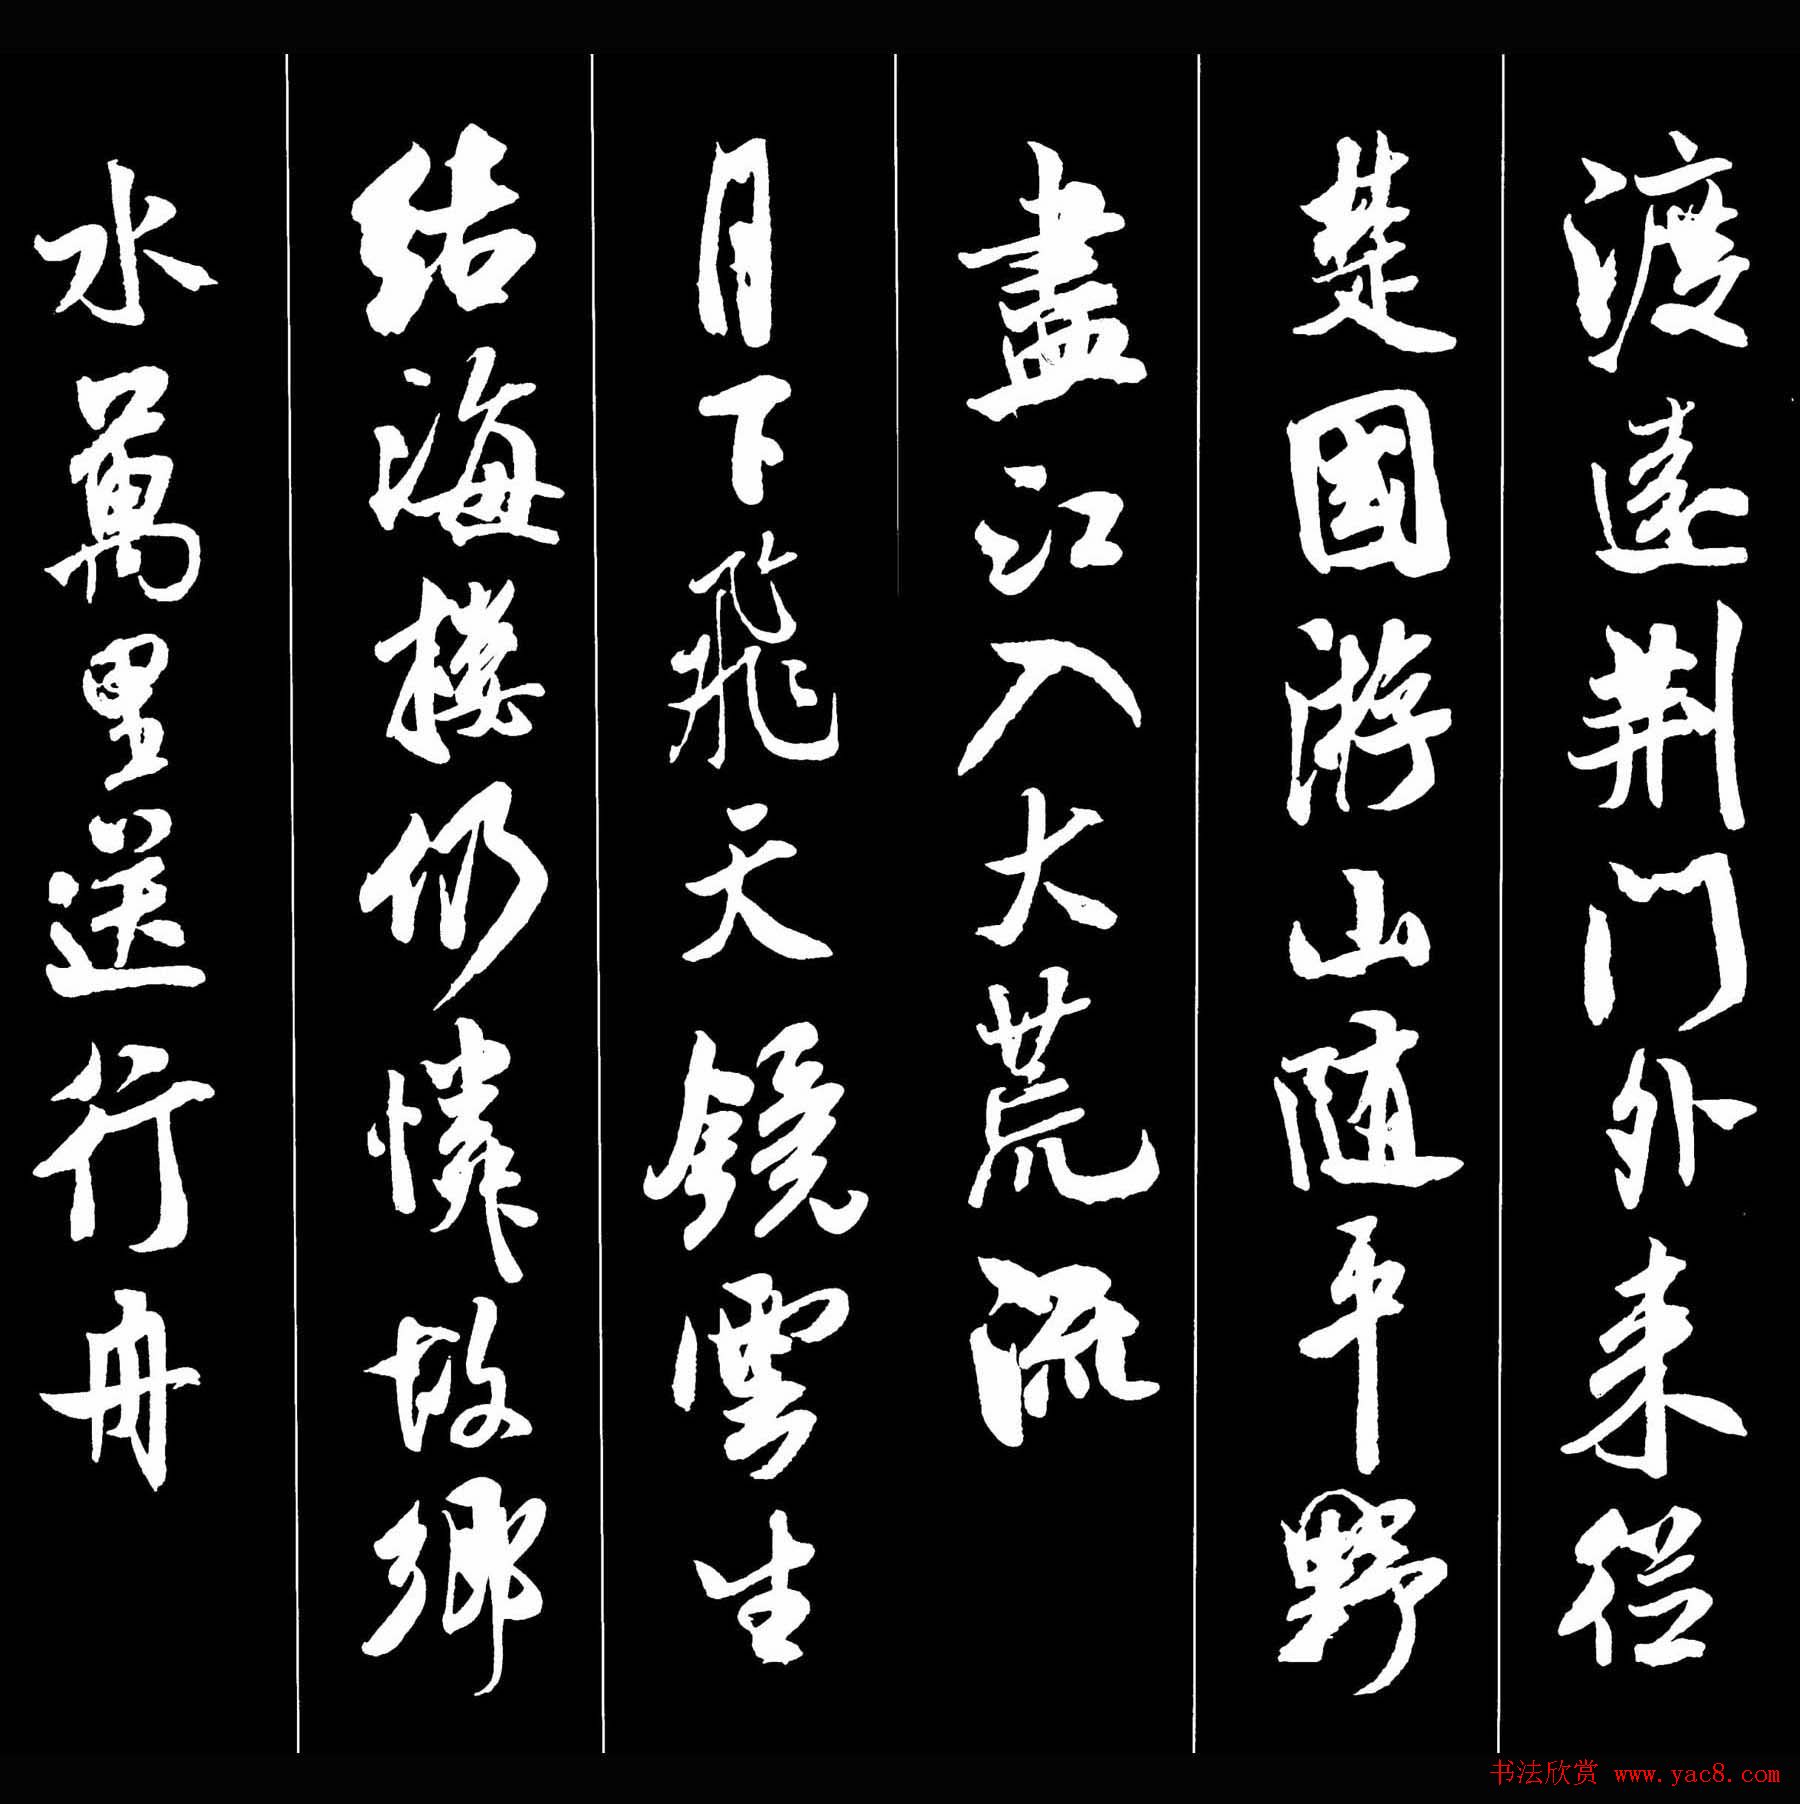 渡遠荆门外来從
楚國游山随平野
盡江入大荒流
月下飛天鏡雲生
结海楼仍憐故鄉
水萬里送行舟
书法欣赏 www.yac8.com